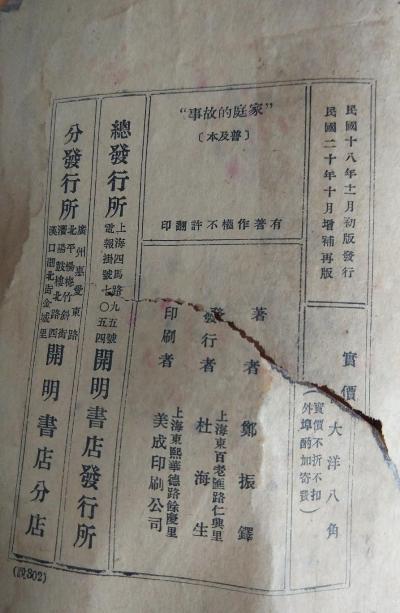 民國十八年十一月初版發行
民國二十年十月增補再版
實價大洋八角
(實價不折不扣
外埠酌加寄費)
“家庭的故事”
〔普及本〕
有著作權不許翻印
著者 鄭振鐸
發行者 上海東百老匯路仁興里
杜海生
印刷者 上海東熙華德路餘慶里
美成印刷公司
總發行所 上海四馬路九五號
電報掛號七〇五四
開明書店發行所
分發行所 廣州惠愛東路
北平楊梅竹斜街
瀋陽鼓樓北路西
漢口湖北街金城里
開明書店分店